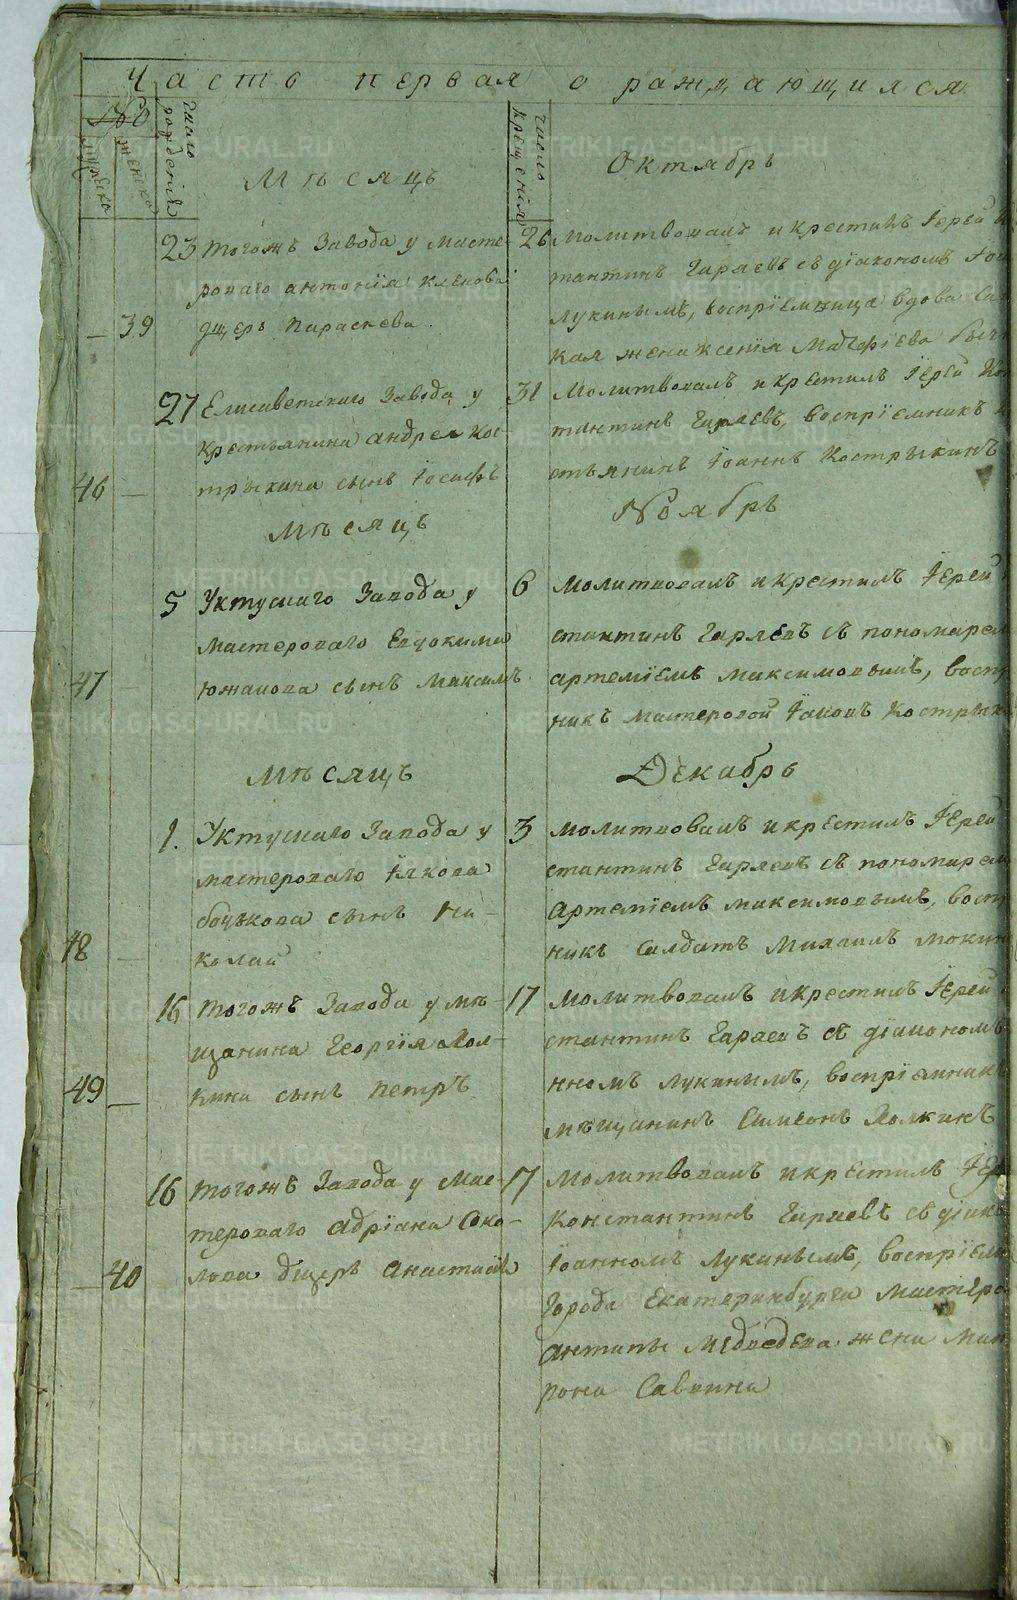 Часть первая о раждающихся
№
мужска
женска
число рождения
число крещения
Мѣсяцъ Октябрь
39 23 тогожъ Завода у масте-
роваго антонїя кленова
дщерь Параскева.
26 Молитвовалъ и крестилъ Їерей
стантинъ Гаряевъ съ дїакономъ
лукинымъ, воспрїемница вдова
кая жена ксенїя Матфїева
46 27 Елисаветскаго Завода у
крестьянина андрея Кос-
трыкина сынъ Їосифъ
31 Молитвовалъ и крестилъ Їерей Кон
тантинъ Гаряевъ, воспрїемникъ
стьянинъ Їоаннъ Кострыкинъ
Мѣсяцъ Ноябрь
47 5 Уктускаго Завода у
мастероваго Евдокима
южакова сынъ Максимъ
6 Молитвовалъ и крестилъ Їерей
стантинъ Гаряевъ съ пономарем
артемїемъ максимовымъ, воспр
никъ мастеровой Їаковъ Кострык
Мѣсяцъ Декабрь
48 1. Уктускаго Завода у
мастероваго Їакова
бочькова сынъ Ни-
колай
3 Молитвовалъ и крестилъ Їерей
стантинъ Гаряевъ съ пономарем
Артемїемъ максимовымъ, восп
никъ Салдатъ Михаилъ мокин
49 16 тогожъ Завода у мѣ-
щанина Георгїя Яол-
кина сынъ Петръ
17 Молитвовалъ и крестилъ Їерей
стантинъ Гаряевъ съ дїакономъ
нномъ лукинымъ, воспрїемникъ
мѣщанинъ Симеонъ Яолкинъ
40 16 тогожъ Завода у мас-
тероваго Адрїана Соко-
лова дщерь Анастасїя
17 Молитвовалъ и крестилъ Їер
Константинъ Гаряевъ съ дїак
Їоанномъ лукинымъ, воспрїем
Города Екатеринбурга Мастеро
антипы Медведева жена Мат
рона Саввина